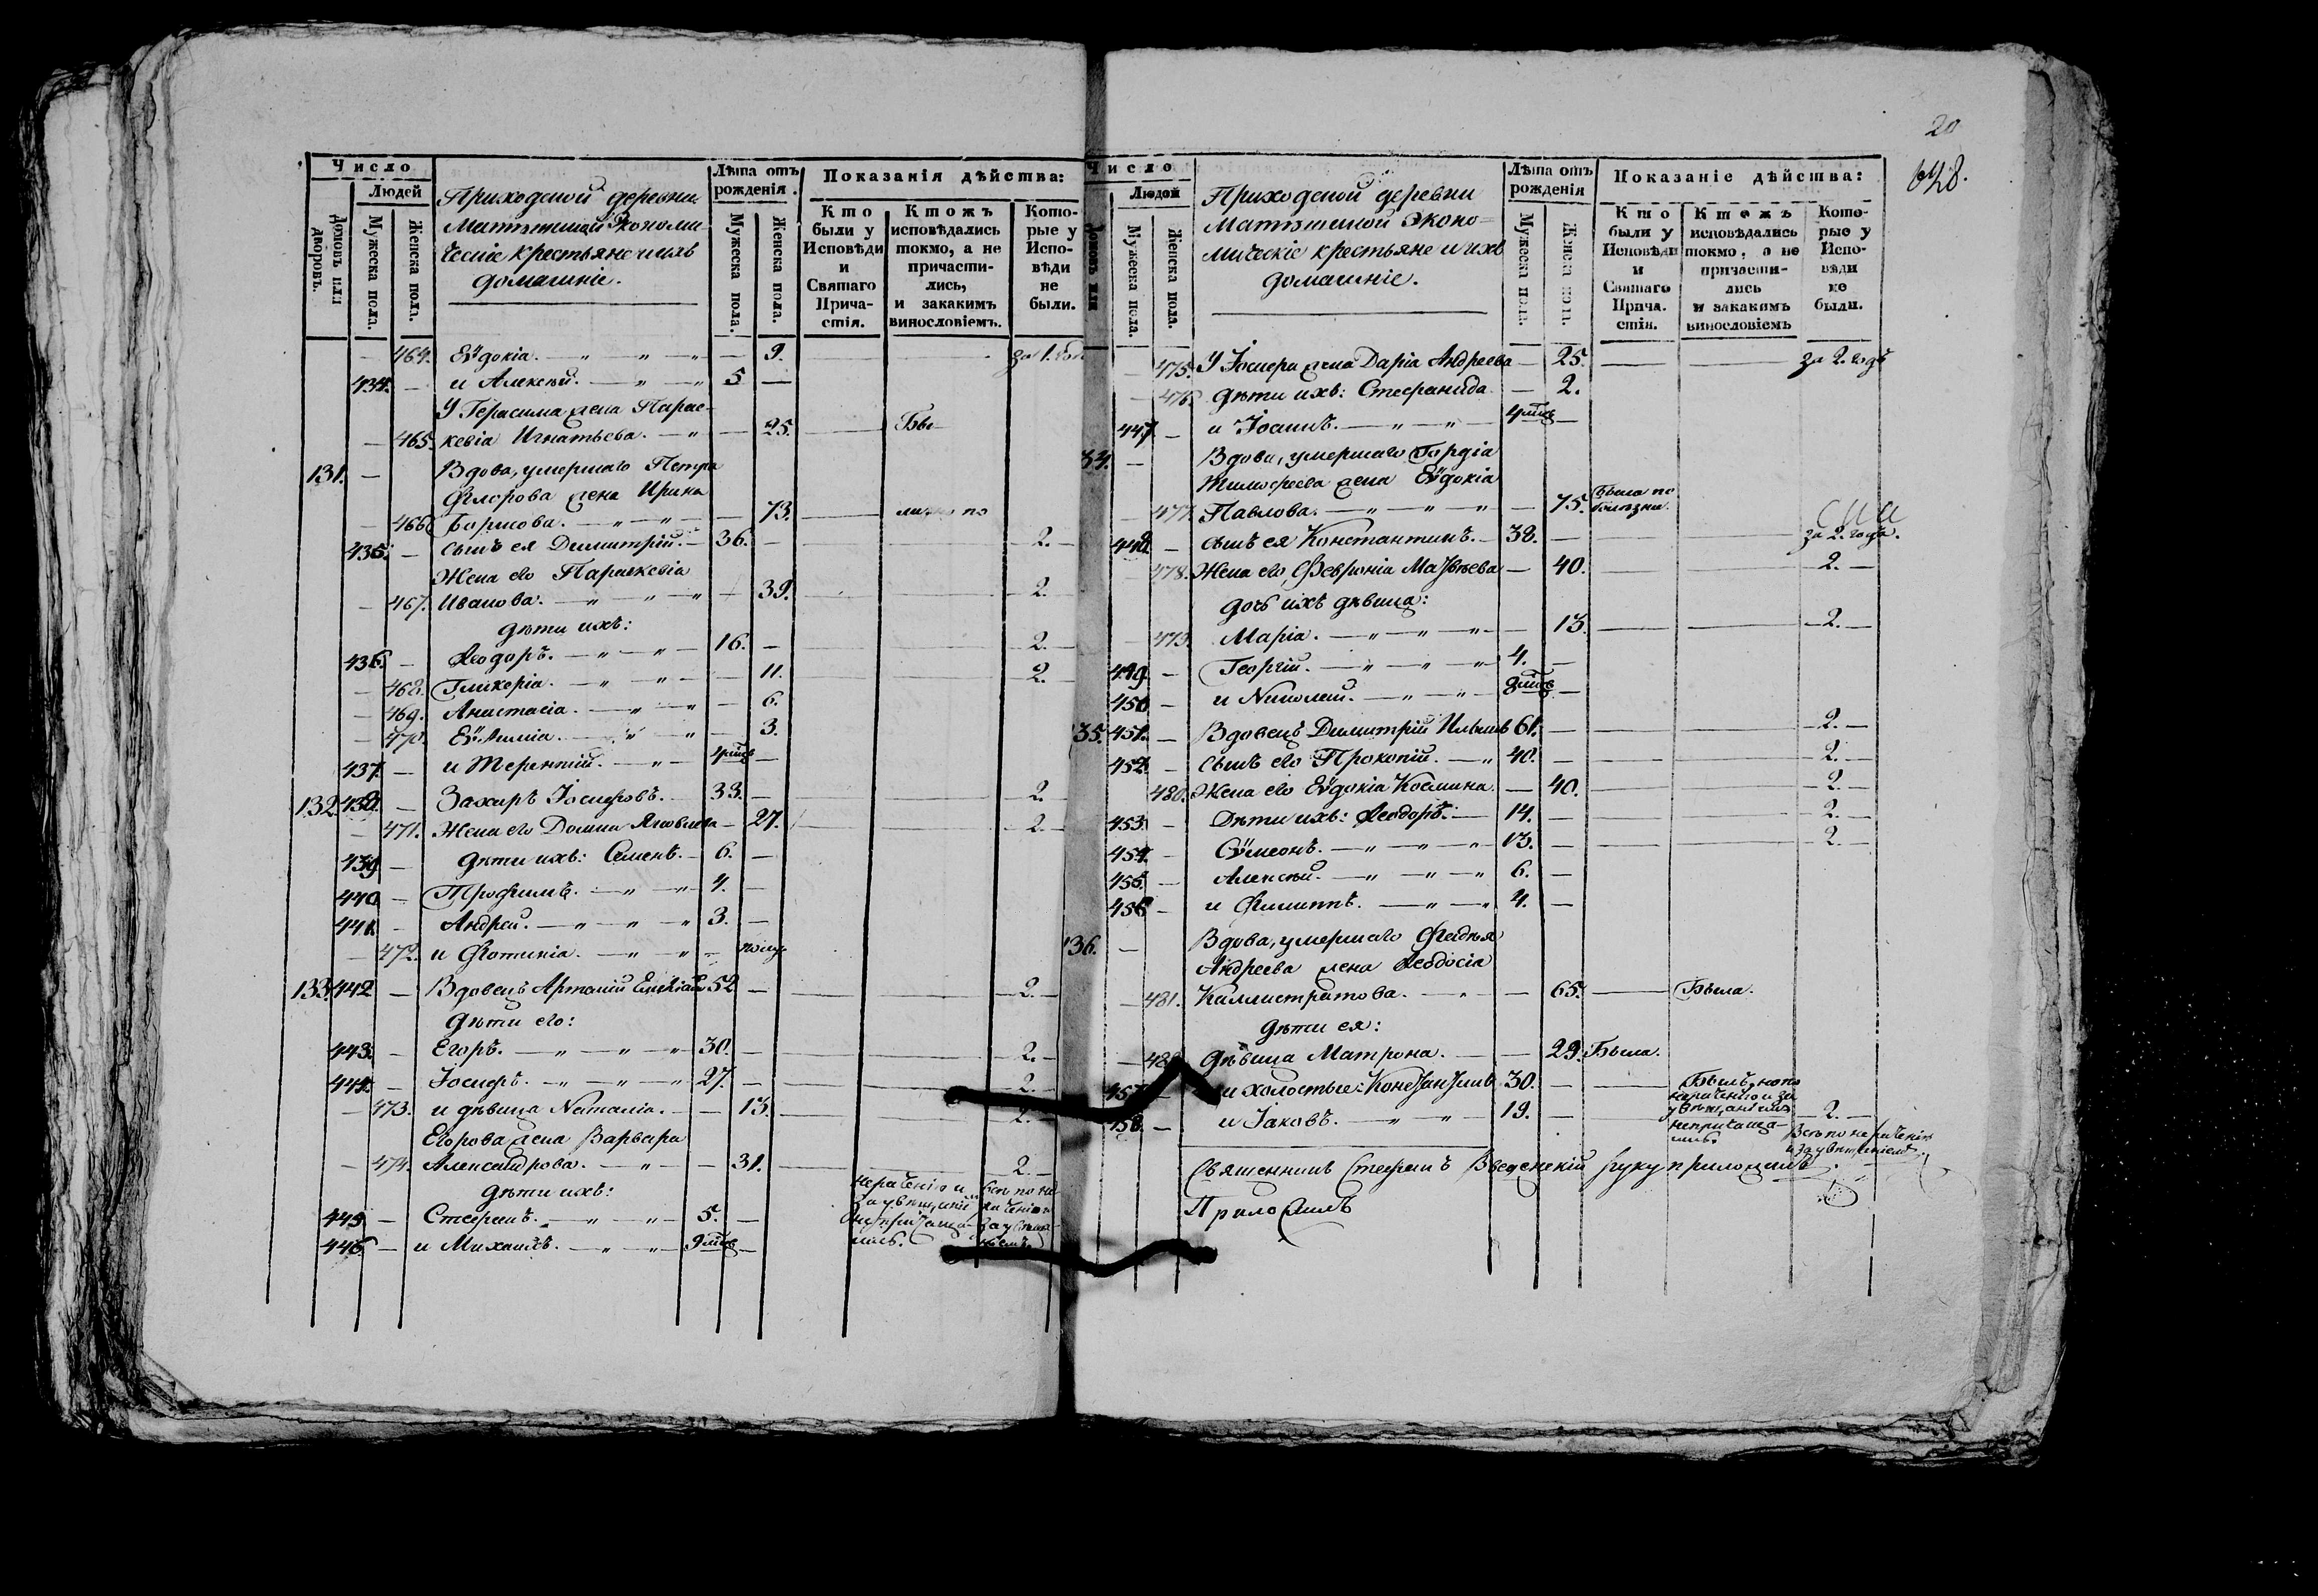 20
648.
Число
Людей
домовъ или дворовъ.
Мужеска пола.
Женска пола.
Приходской деревни
Экономи-
ческіе крестьяне и ихъ
домашніе.
Лѣта отъ рожденія.
Мужеска пола.
Женска пола.
Показанія дѣйства:
Кто были у Исповѣди и Святаго Причастія.
Ктожъ исповѣдались токмо, а не причастились, и закакимъ винословіемъ.
Которые у Исповѣди не были.
464. Еѵдокія. — 9. за 1. годъ
434. и Алексѣй. — 5
У Герасима жена Парас-
465. кевіа Игнатьева. — 25.
131. Вдова, умершаго Петра
Флорова жена Ирина
466. Борисова. — 73.
435. сынъ ея Димитрій. — 36. — 2.
Жена его Параскевіа
467. Иванова. — 39. — 2.
дѣти ихъ:
436. Ѳеодоръ. — 16. — 2.
468. Гликеріа. — 11. 2.
469. Анастасіа. — 6.
470. Еѵѳиміа. — 3.
437. и Терентій. — 4 мцъ
132. 438. Захаръ Іосифовъ. 33. — 2.
471. Жена его Домна Яковлева — 27. — 2.
439. дѣти ихъ: Семенъ. — 6.
440. Трофимъ. — 4.
441. Андрей. — 3.
472. и Фотиніа. —
133. 442. Вдовецъ Артемій 52. — 2.
дѣти его:
443. Егоръ. — 30. — 2.
444. Іосифъ. — 27. — 2.
473. и дѣвица Наталіа. — 13. — 2.
Егорова жена Варвара
474. Александрова. — 31. — 2.
дѣти ихъ:
445. Стефанъ. — 5.
446. и Михаилъ. — 9 мцъ
Число
Людей
Домовъ или
Мужеска пола.
Женска пола.
Приходской деревни
Эконо-
мическіе крестьяне и ихъ
домашніе.
Лѣта отъ рожденія
Мужеска пола.
Женска пола.
Показаніе дѣйства:
Кто были у Исповѣди и Святаго Причастія.
Ктожъ исповѣдались токмо, а не причастились и закакимъ винословіемъ
Которые у Исповѣди не были.
475. У Іосифа жена Даріа Андреева — 25. — за 2. годъ
476. дѣти ихъ: Стефанида — 2.
447. и Іоаннъ. — 4 мцъ
34. Вдова, умершаго Гордіа
Тимофеева жена Еѵдокіа
477. Павлова. — 75. Была по болѣзни.
448. сынъ ея Константинъ. — 38. — за 2. года.
478. Жена его, Февроніа Матвѣева — 40. — 2.
дочь ихъ дѣвица:
479. Маріа. — 13. — 2.
449. Георгій. — 4.
450. и Николай. — 9 мцъ
35. 451. Вдовецъ Димитрій Ильинъ 61. — 2.
452. сынъ его Прокопій. — 40. — 2.
480. Жена его Еѵдокіа Космина. — 40. — 2.
453. Дѣти ихъ: Ѳеодоръ. — 14. — 2.
454. Сѵмеонъ. — 13. — 2.
455. Алексѣй. — 6.
456. и Филиппъ. — 4.
136. Вдова, умершаго Фадѣя
Андреева жена Ѳеодосіа
481. Каллистратова. — 65. — Была.
дѣти ея:
482 дѣвица Матрона. — 29. Была.
457. и холостые: Константинъ 30. — Былъ, но по
нерачению и за
458. и Іаковъ. — 19. — 2.
Всѣ по нерачению
Священникъ Стефанъ Введенскій руку приложилъ.
Приложилъ